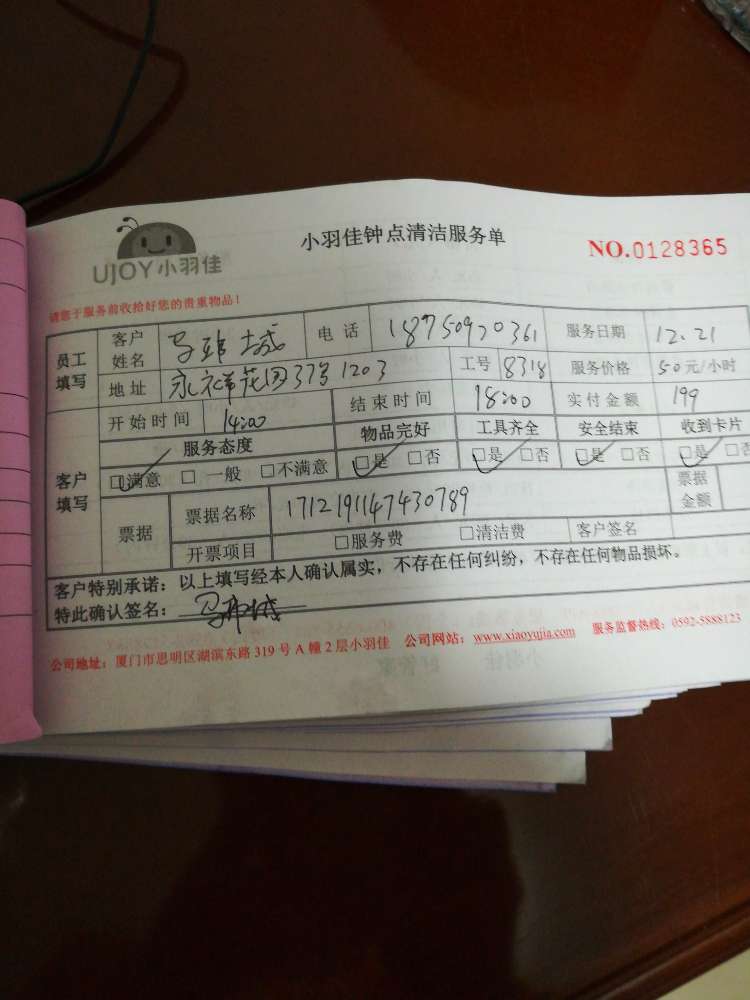 UJOY小羽佳
小羽佳钟点清洁服务单
NO.0128365
请您于服务前收给好您的贵重物品!
员工填写 客户姓名 城 电话 18750970361 服务日期 12.21
地址 永祥花园37号1203 工号 8318 服务价格 50元/小时
客户填写 开始时间 14:00 结束时间 18:00 实付金额 199
服务态度 物品完好 工具齐全 安全结束 收到卡片
□满意 □一般 □不满意 □是 □否 □是 □否 □是 □否 □是 □否
票据 票据名称 1712191147430789 票据金额
开票项目 □服务费 □清洁费 客户签名
客户特别承诺：以上填写经本人确认属实，不存在任何纠纷，不存在任何物品损坏。
特此确认签名：
公司地址：厦门市思明区湖滨东路319号A幢2层小羽佳 公司网站：www.xiaoyujia.com 服务监督热线：0592-5888123